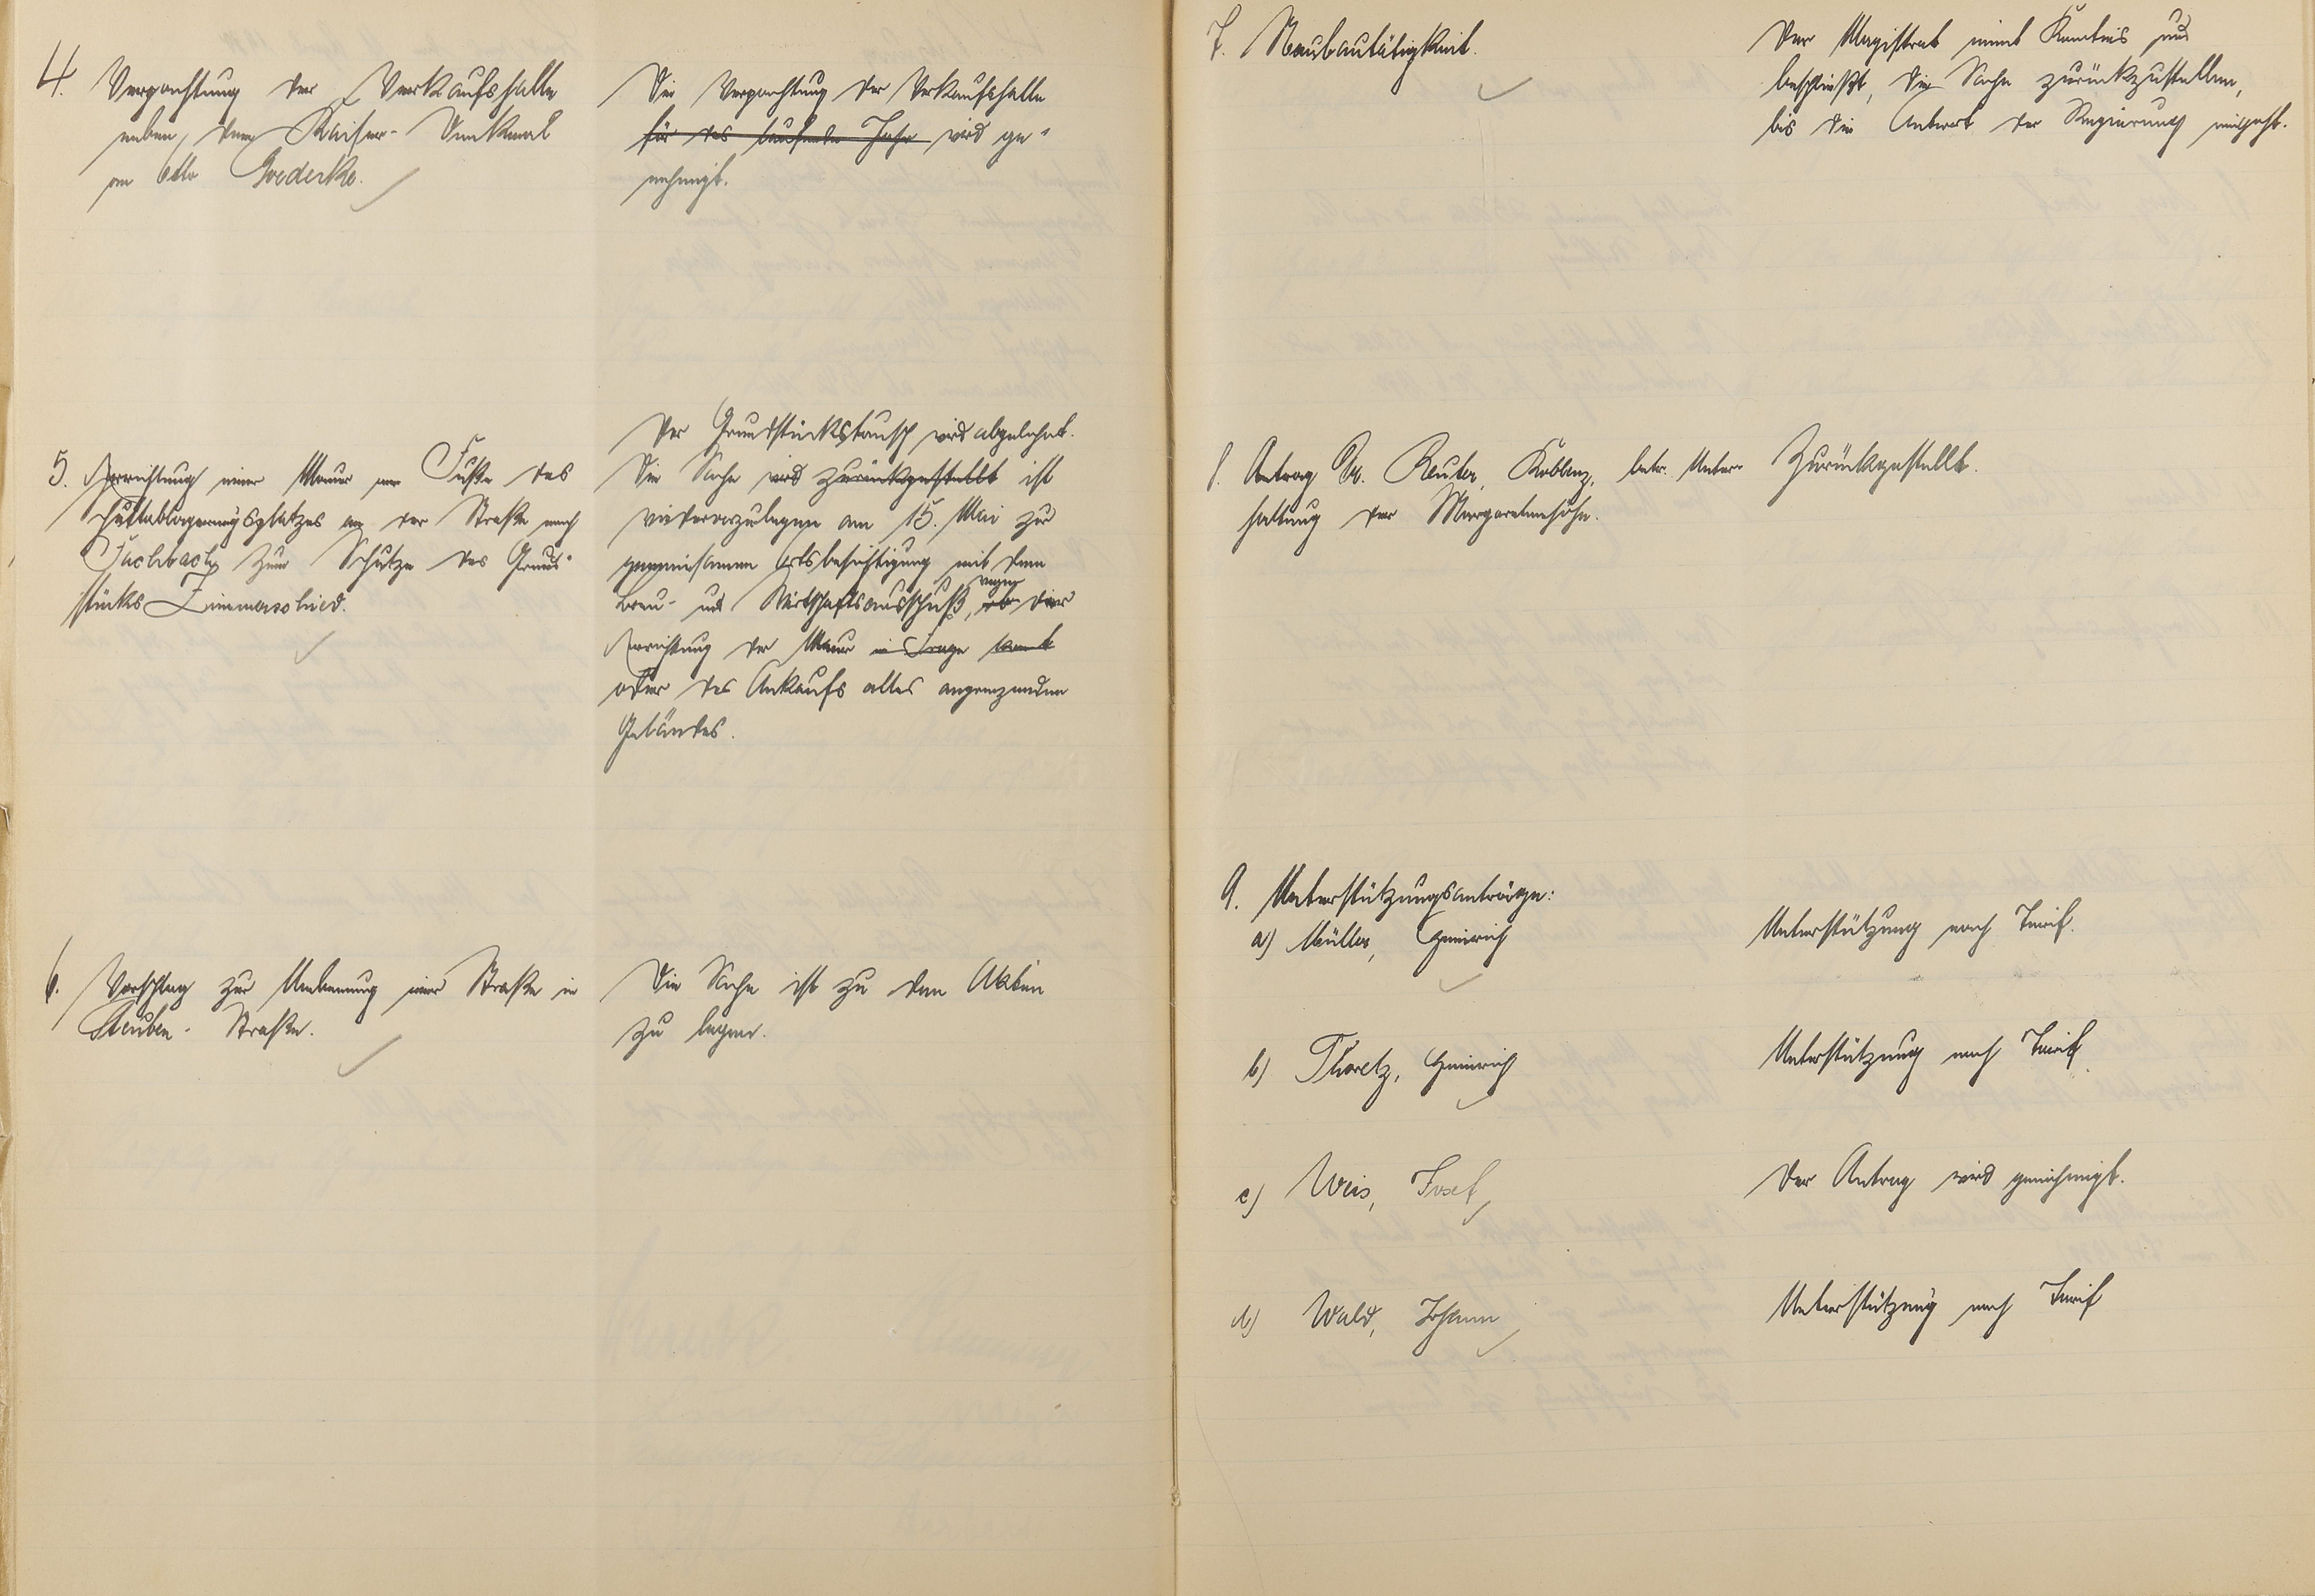 4. Verpachtung der Verkaufshalle
neben dem Kaiser-Denkmal
an Otto Goedecke.
Die Verpachtung der Verkaufshalle
für das laufende Jahr wird ge-
nehmigt.
5. Errichtung einer Mauer am Fuße des
Schuttablagerungsplatzes an der Straße nach
Fachbach zum Schutze des Grund-
stücks Zimmerschied.
Der Grundstückstausch wird abgelehnt.
Die Sache wird zurückgestellt ist
wiedervorzulegen am 15. Mai zur
gemeinsamen Ortsbesichtigung mit dem
Bau- und Wirtschaftsausschuß, ob wegen der
Errichtung der Mauer in Frage kommt
oder des Ankaufs alles angrenzenden
Geländes.
6. Vorschlag zur Umbenennung einer Straße in
Steuben-Straße.
Die Sache ist zu den Akten
zu legen.
7. Neubautätigkeit.
Der Magistrat nimmt Kenntnis und
beschließt, die Sache zurückzustellen,
bis die Antwort der Regierung eingeht.
8. Antrag Dr. Reuter, Koblenz, betr. Unter-
haltung der Margaretenhöhe.
Zurückgestellt.
9. Unterstützungsanträge:
a) Müller, Heinrich
Unterstützung nach Tarif.
b) Thoretz, Heinrich
Unterstützung nach Tarif.
c) Weis, Josef
Der Antrag wird genehmigt.
d) Wald, Johann
Unterstützung nach Tarif